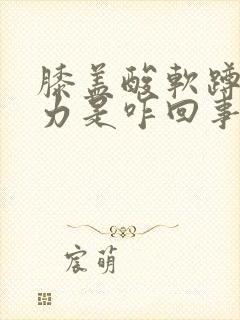 膝盖酸軟蹲
力是咋回事
宸萌